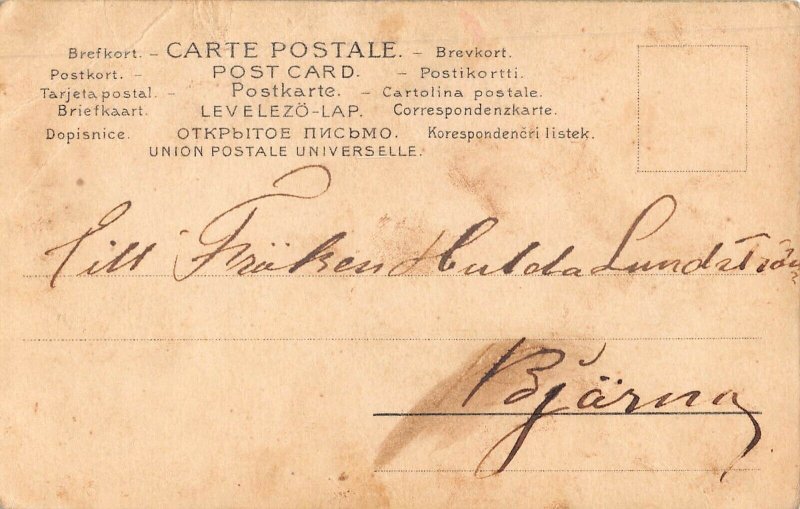 Brefkort. – CARTE POSTALE. – Brevkort.
Postkort. – POST CARD. – Postikortti.
Tarjeta postal. – Postkarte. – Cartolina postale.
Briefkaart. LEVELEZÖ-LAP. Correspondenzkarte.
Dopisnice. ОТКРЫТОЕ ПИСЬМО. Korespondenčri listek.
UNION POSTALE UNIVERSELLE.
Till Fröken Hulda Lundström
Bjärna